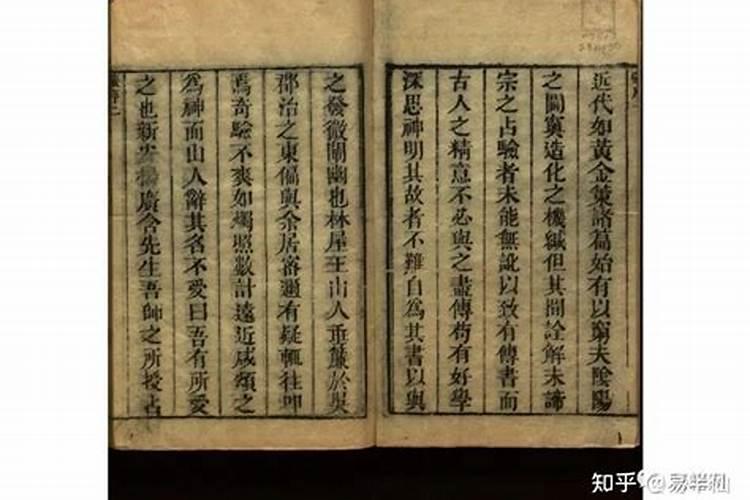 近代如黃金策諸篇始有以窮夫陰陽
之閫奧造化之機緘但其間詮解未諦
宗之占驗者未能無訛以致有傳書而
古人之精意不必與之盡傳苟有好學
深思神明其故者不難自為其書以與
之發微闡幽也林屋王山人垂簾於吳
郡治之東偏與余居密邇有疑輒往叩
焉奇驗不爽如燭照數計遠近咸頌之
為神而山人辭其名不愛曰吾有所愛
之也新安楊廣含先生吾師之所授占
知乎 @易半仙